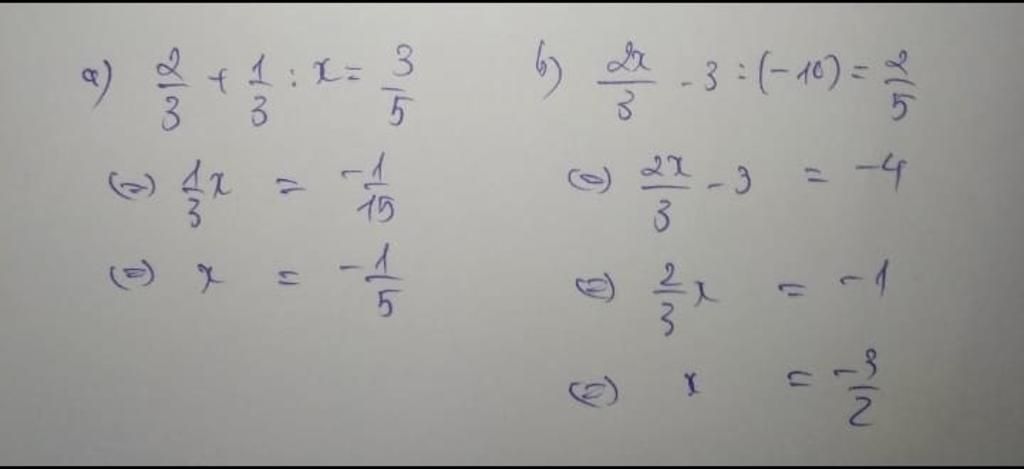 a) 2/3 + 1/3 : x = 3/5
(=) 1/3 x = -1/15
(=) x = -1/5
b) 2x/3 - 3 : (-10) = 2/5
(=) 2x/3 - 3 = -4
(=) 2/3 x = -1
(=) x = -3/2